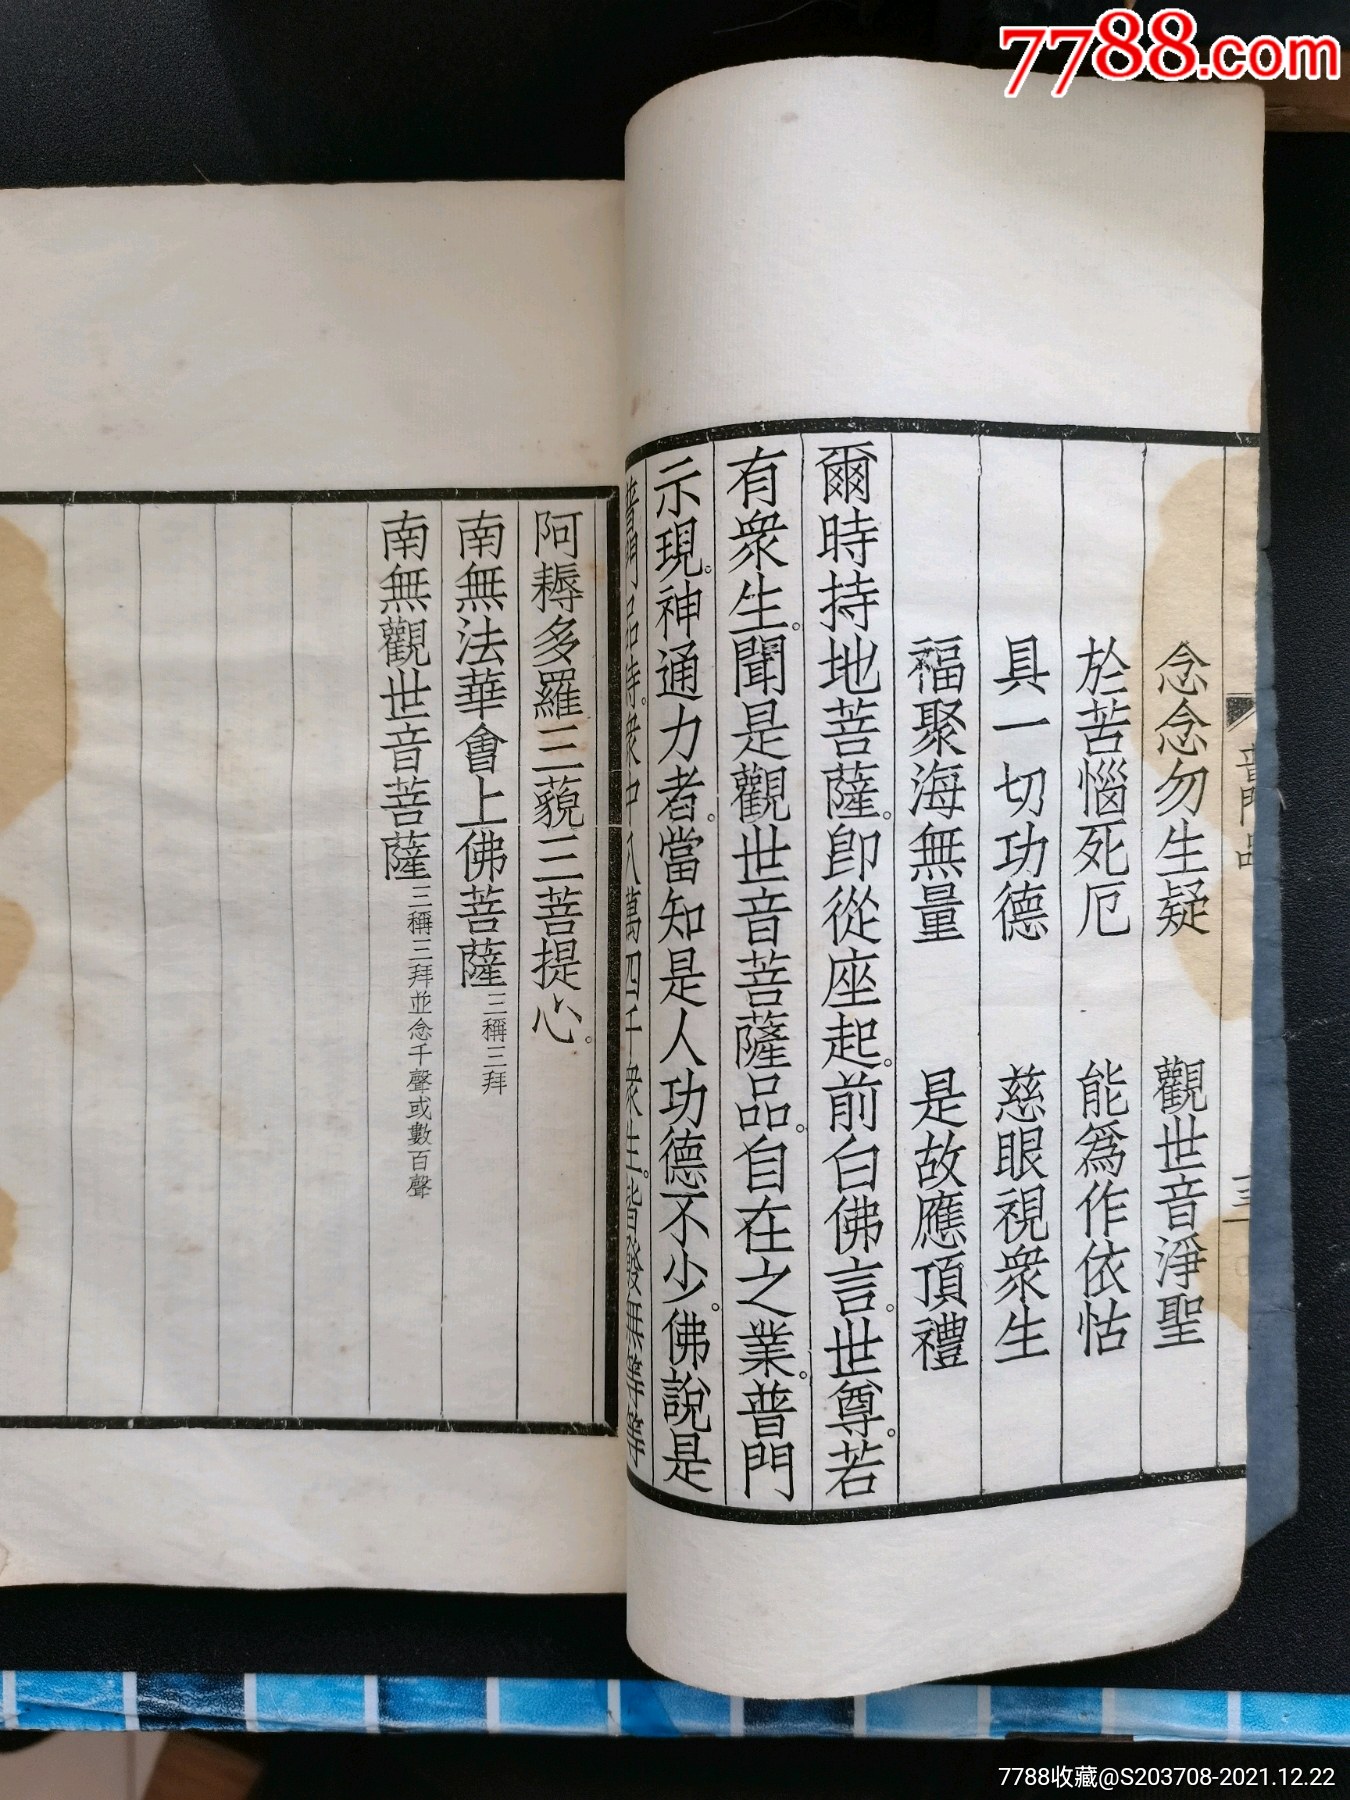 7788.com
普門品
念念勿生疑 觀世音淨聖
於苦惱死厄 能爲作依怙
具一切功德 慈眼視衆生
福聚海無量 是故應頂禮
爾時持地菩薩。卽從座起。前白佛言。世尊。若
有衆生。聞是觀世音菩薩品。自在之業。普門
示現。神通力者。當知是人功德不少。佛說是
普門品時。衆中八萬四千衆生。皆發無等等
阿耨多羅三藐三菩提心。
南無法華會上佛菩薩三稱三拜
南無觀世音菩薩三稱三拜並念千聲或數百聲
7788收藏@S203708-2021.12.22